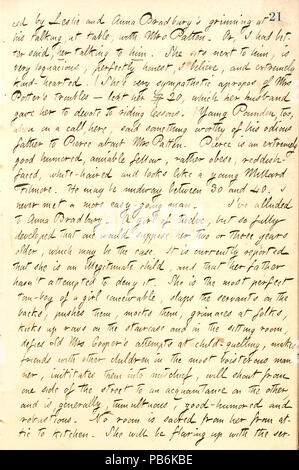 21
ed by Leslie and Anna Bradbury's grinning at
his talking at table, with Mrs Patten. Or, I had bet-
ter said, her talking to him. She sits next to him, is
very loquacious, perfectly honest, I believe, and extremely
kind-hearted. (She's very sympathetic apropos of Mrs
Potter's troubles — lent her $20, which her husband
gave her to devote to riding lessons.) Young Pounden, too,
when in a call here, said something worthy of his odious
father to Pierce about Mrs Patten. Pierce is an extremely
good humored, amiable fellow, rather obese, reddish-
faced, white-haired and looks like a young Millard
Filmore. He may be midway between 30 and 40. I
never met a more easy going man. I've alluded
to Anna Bradbury. A girl of twelve, but so fully
developed that one would suppose her two or three years
older, which may be the case. It is currently reported
that she is an illegitimate child, and that her father
hasn't attempted to deny it. She is the most perfect
tom-boy of a girl conceivable, slaps the servants on the
backs, pushes them, mocks them, grimaces at folks,
kicks up rows on the staircase and in the sitting room,
defies old Mrs Cooper's attempts at child-quelling, makes
friends with other children in the most boisterous man-
ner, initiates them into mischief, will shout from
one side of the street to an acquaintance on the other
and is, generally, tumultuous, good-humored and
robustious. No room is sacred from her from at-
tic to kitchen. She will be flaring up with the ser-
alamy
Image ID: PB6KBE
www.alamy.com